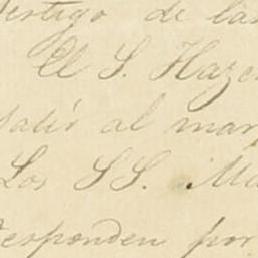 Vertigo de las
El S. Hazen
salir al mar
Los SS. Ma
responden por